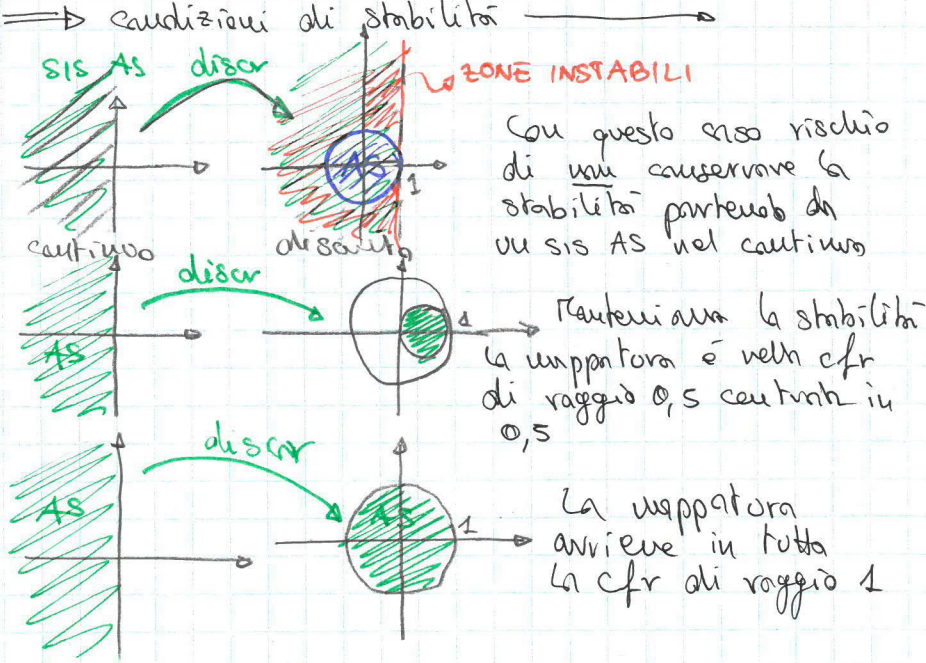 ⟹ condizioni di stabilità ⟶
SIS AS discr
ZONE INSTABILI
AS
1
Con questo caso rischio
di non conservare la
stabilità partendo da
un sis AS nel continuo
continuo discreto
discr
AS
1
Manteniamo la stabilità
la mappatura è nella cfr
di raggio 0,5 centrata in
0,5
discr
AS
AS
1
La mappatura
avviene in tutta
la cfr di raggio 1